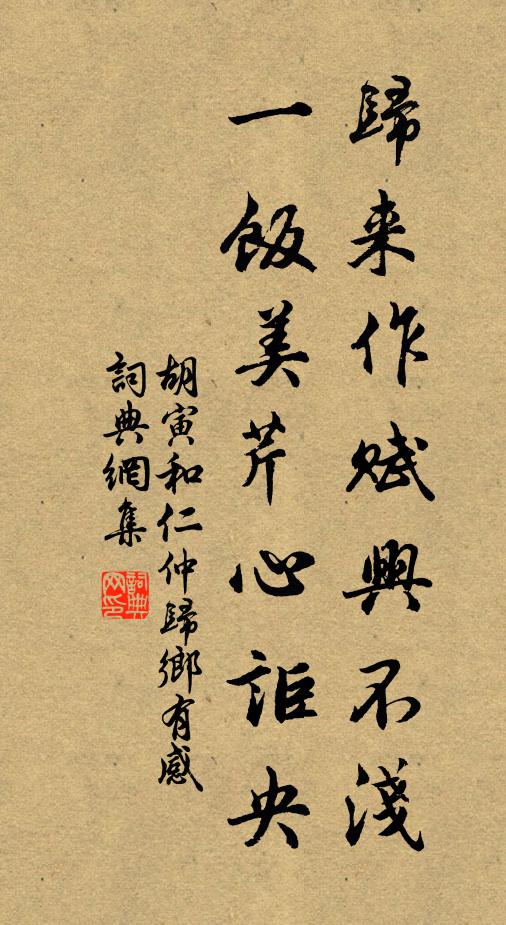 歸来作赋興不淺
一飯美芹心詎央
胡寅和仁仲歸鄉有感
詞典網集
詞典網印